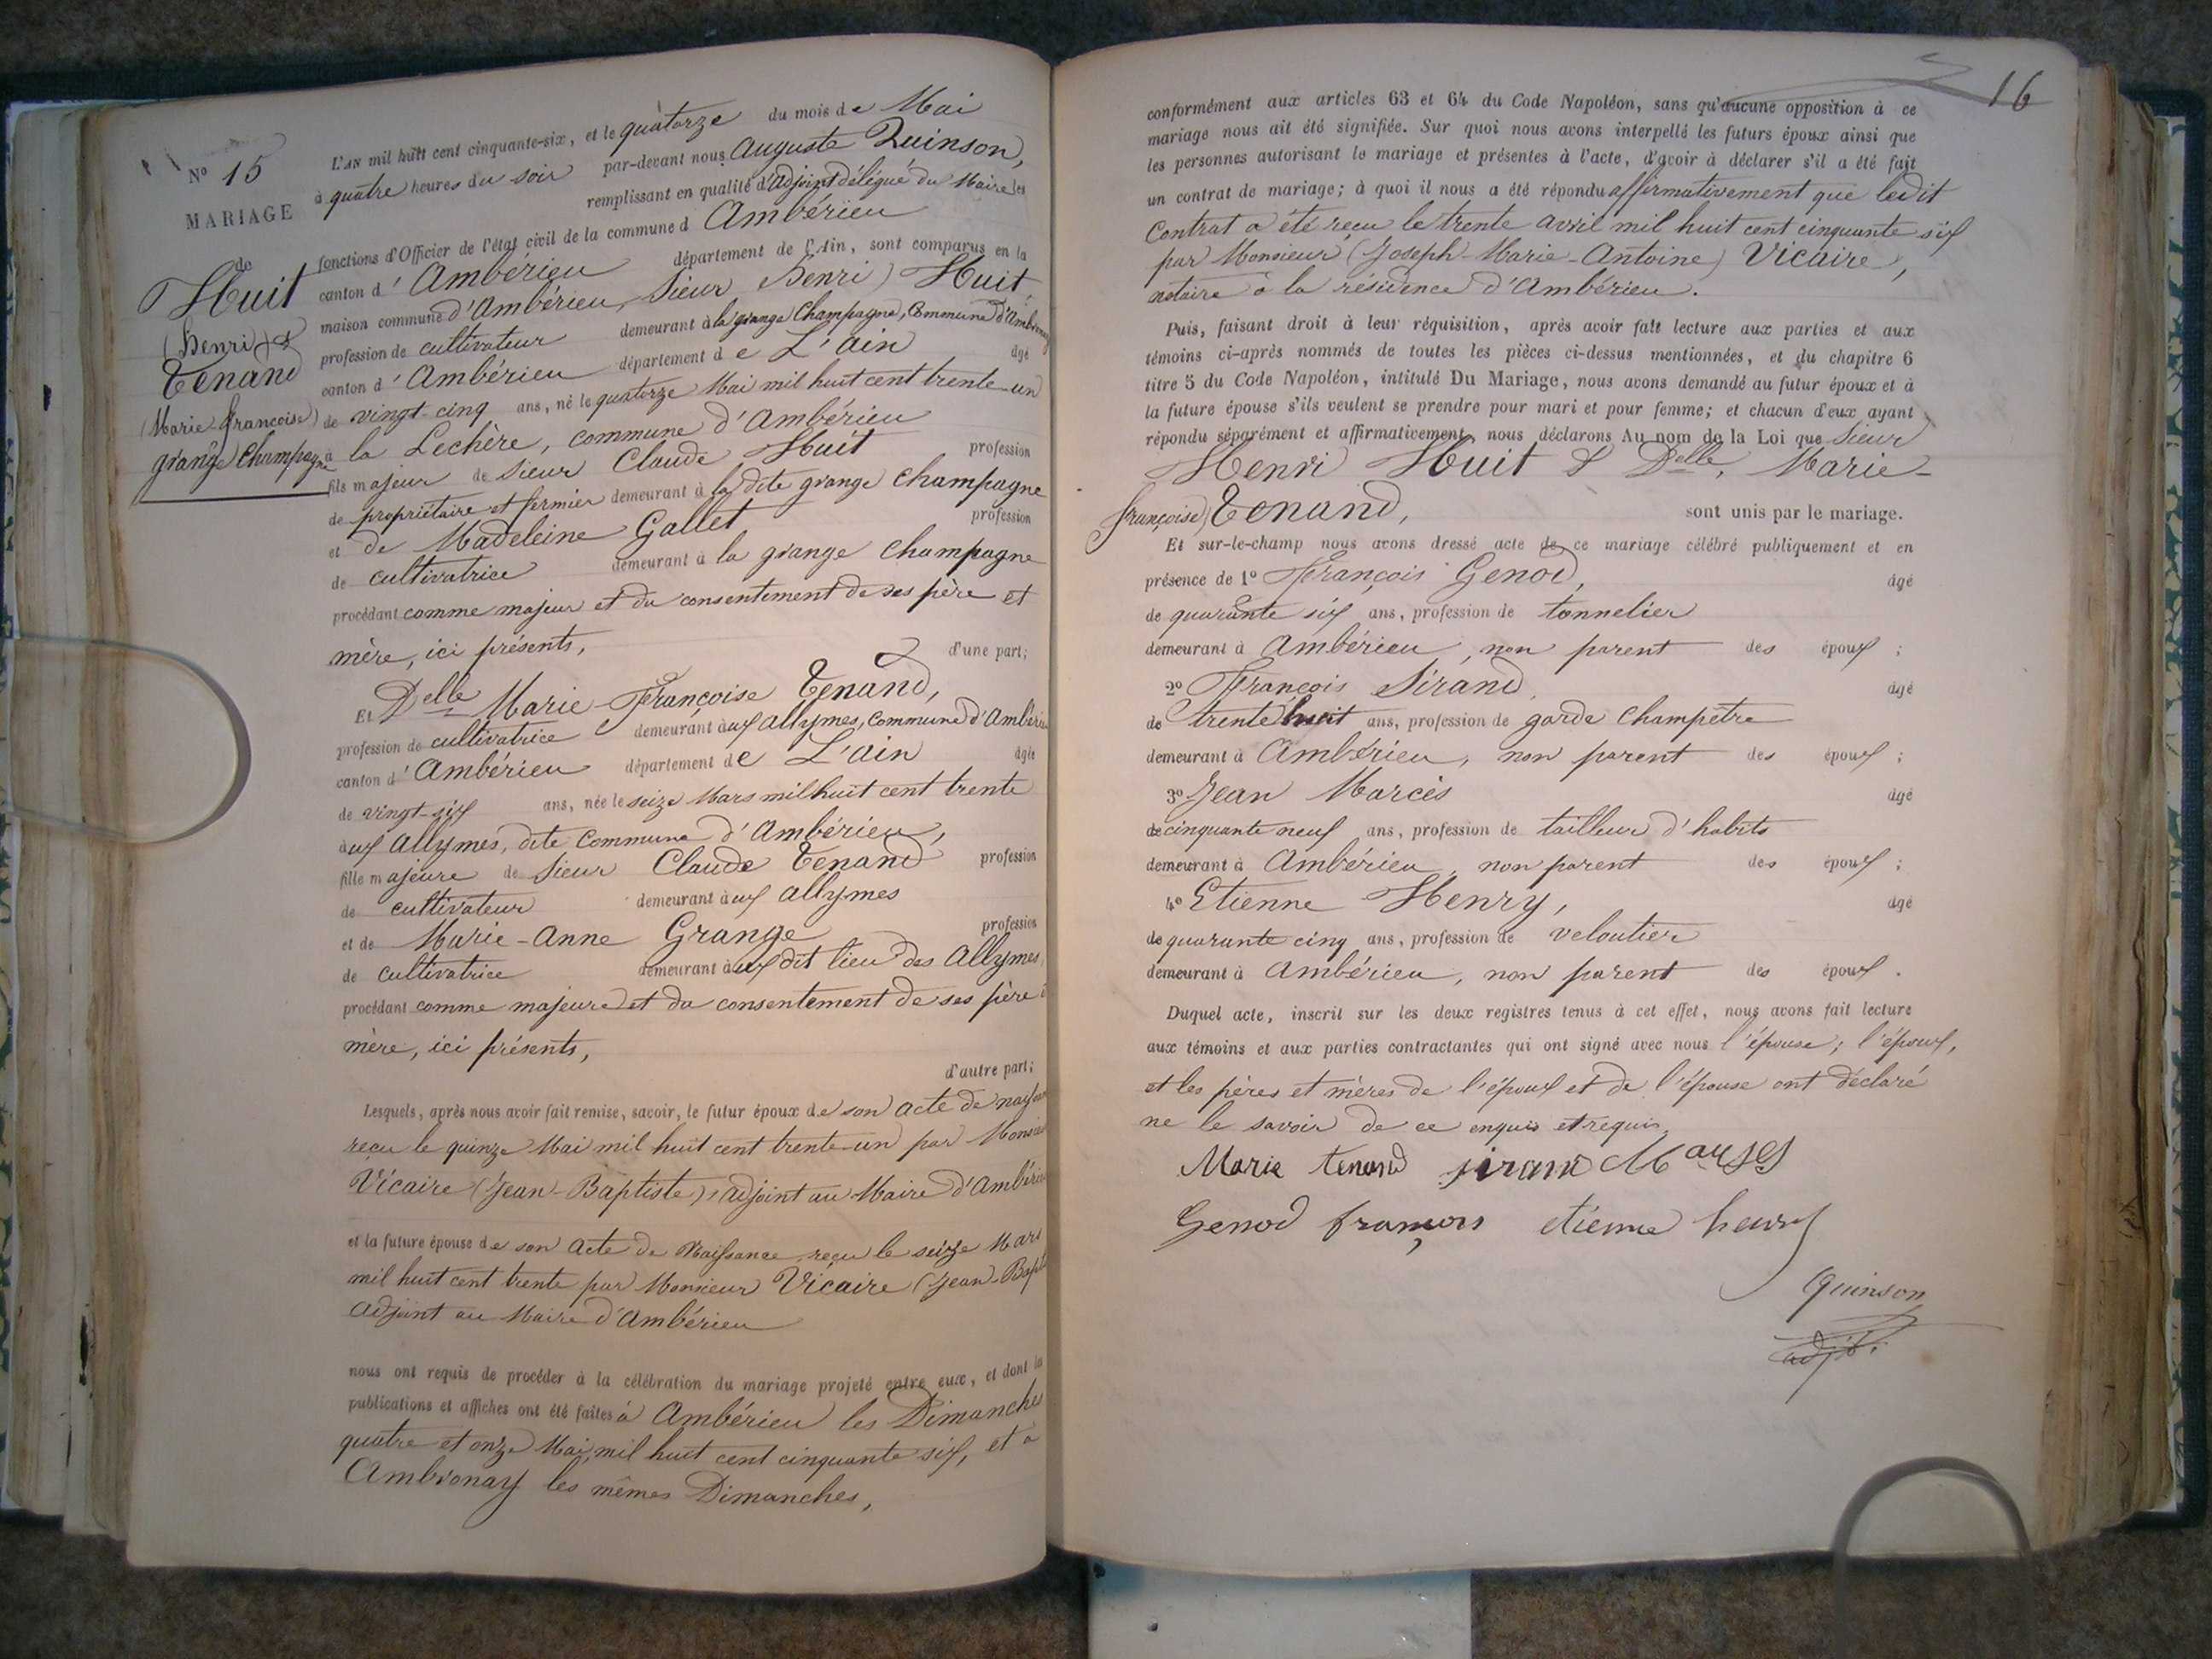 N° 15
MARIAGE
de
Huit
(henri) &
Tenand
(Marie-françoise)
grange Champagne
L'AN mil huit cent cinquante-six, et le quatorze du mois de Mai
à quatre heures du soir par-devant nous Auguste Quinson,
remplissant en qualité d'adjoint délégué du Maire les
fonctions d'Officier de l'état civil de la commune d Ambérieu
canton d'Ambérieu département de l'Ain, sont comparus en la
maison commune d'Ambérieu, Sieur henri Huit,
profession de cultivateur demeurant à la grange Champagne, Commune d'Ambronay
canton d'Ambérieu département de L'ain âgé
de vingt-cinq ans, né le quatorze Mai mil huit cent trente-un
à la Lechère, commune d'Ambérieu
fils majeur de Sieur Claude Huit profession
de propriétaire et fermier demeurant à la dite grange Champagne
et de Madeleine Gallet profession
de cultivatrice demeurant à la grange Champagne
procédant comme majeur et du consentement de ses père et
mère, ici présents, d'une part;
Et Delle Marie Françoise Tenand,
profession de cultivatrice demeurant aux Allymes, Commune d'Ambérieu
canton d'Ambérieu département de L'ain âgée
de vingt-six ans, née le seize Mars mil huit cent trente
aux Allymes, dite Commune d'Ambérieu,
fille majeure de Sieur Claude Tenand profession
de cultivateur demeurant aux Allymes
et de Marie-Anne Grange profession
de cultivatrice demeurant aux dit lieu des Allymes,
procédant comme majeure et du consentement de ses père &
mère, ici présents,
d'autre part;
Lesquels, après nous avoir fait remise, savoir, le futur époux de son acte de naissance
reçu le quinze Mai mil huit cent trente-un par Monsieur
Vicaire (Jean-Baptiste), adjoint au Maire d'Ambérieu
et la future épouse de son Acte de Naissance reçu le seize Mars
mil huit cent trente par Monsieur Vicaire (Jean-Bapt
adjoint au Maire d'Ambérieu
nous ont requis de procéder à la célébration du mariage projeté entre eux, et dont la
publications et affiches ont été faites à Ambérieu les Dimanches
quatre et onze Mai, mil huit cent cinquante six, et à
Ambronay les mêmes Dimanches,
16
conformément aux articles 63 et 64 du Code Napoléon, sans qu'aucune opposition à ce
mariage nous ait été signifiée. Sur quoi nous avons interpellé les futurs époux ainsi que
les personnes autorisant le mariage et présentes à l'acte, d'avoir à déclarer s'il a été fait
un contrat de mariage; à quoi il nous a été répondu affirmativement que ledit
Contrat a été reçu le trente avril mil huit cent cinquante six
par Monsieur (Joseph-Marie-Antoine) Vicaire,
notaire à la résidence d'Ambérieu.
Puis, faisant droit à leur réquisition, après avoir fait lecture aux parties et aux
témoins ci-après nommés de toutes les pièces ci-dessus mentionnées, et du chapitre 6
titre 5 du Code Napoléon, intitulé Du Mariage, nous avons demandé au futur époux et à
la future épouse s'ils veulent se prendre pour mari et pour femme; et chacun d'eux ayant
répondu séparément et affirmativement, nous déclarons Au nom de la Loi que Sieur
Henri Huit & Delle, Marie-
françoise Tenand, sont unis par le mariage.
Et sur-le-champ nous avons dressé acte de ce mariage célébré publiquement et en
présence de 1° François Genod, âgé
de quarante six ans, profession de tonnelier
demeurant à Ambérieu, non parent des époux;
2° François Sirand, âgé
de trente huit ans, profession de garde champêtre
demeurant à Ambérieu, non parent des époux;
3° Jean Marcès âgé
de cinquante neuf ans, profession de tailleur d'habits
demeurant à Ambérieu, non parent des époux;
4° Etienne Henry, âgé
de quarante cinq ans, profession de veloutier
demeurant à Ambérieu, non parent des époux.
Duquel acte, inscrit sur les deux registres tenus à cet effet, nous avons fait lecture
aux témoins et aux parties contractantes qui ont signé avec nous l'épouse; l'époux,
et les pères et mères de l'époux et de l'épouse ont déclaré
ne le savoir de ce enquis et requis.
Marie tenand sirand
Genod françois etienne henry
Quinson
adjt.